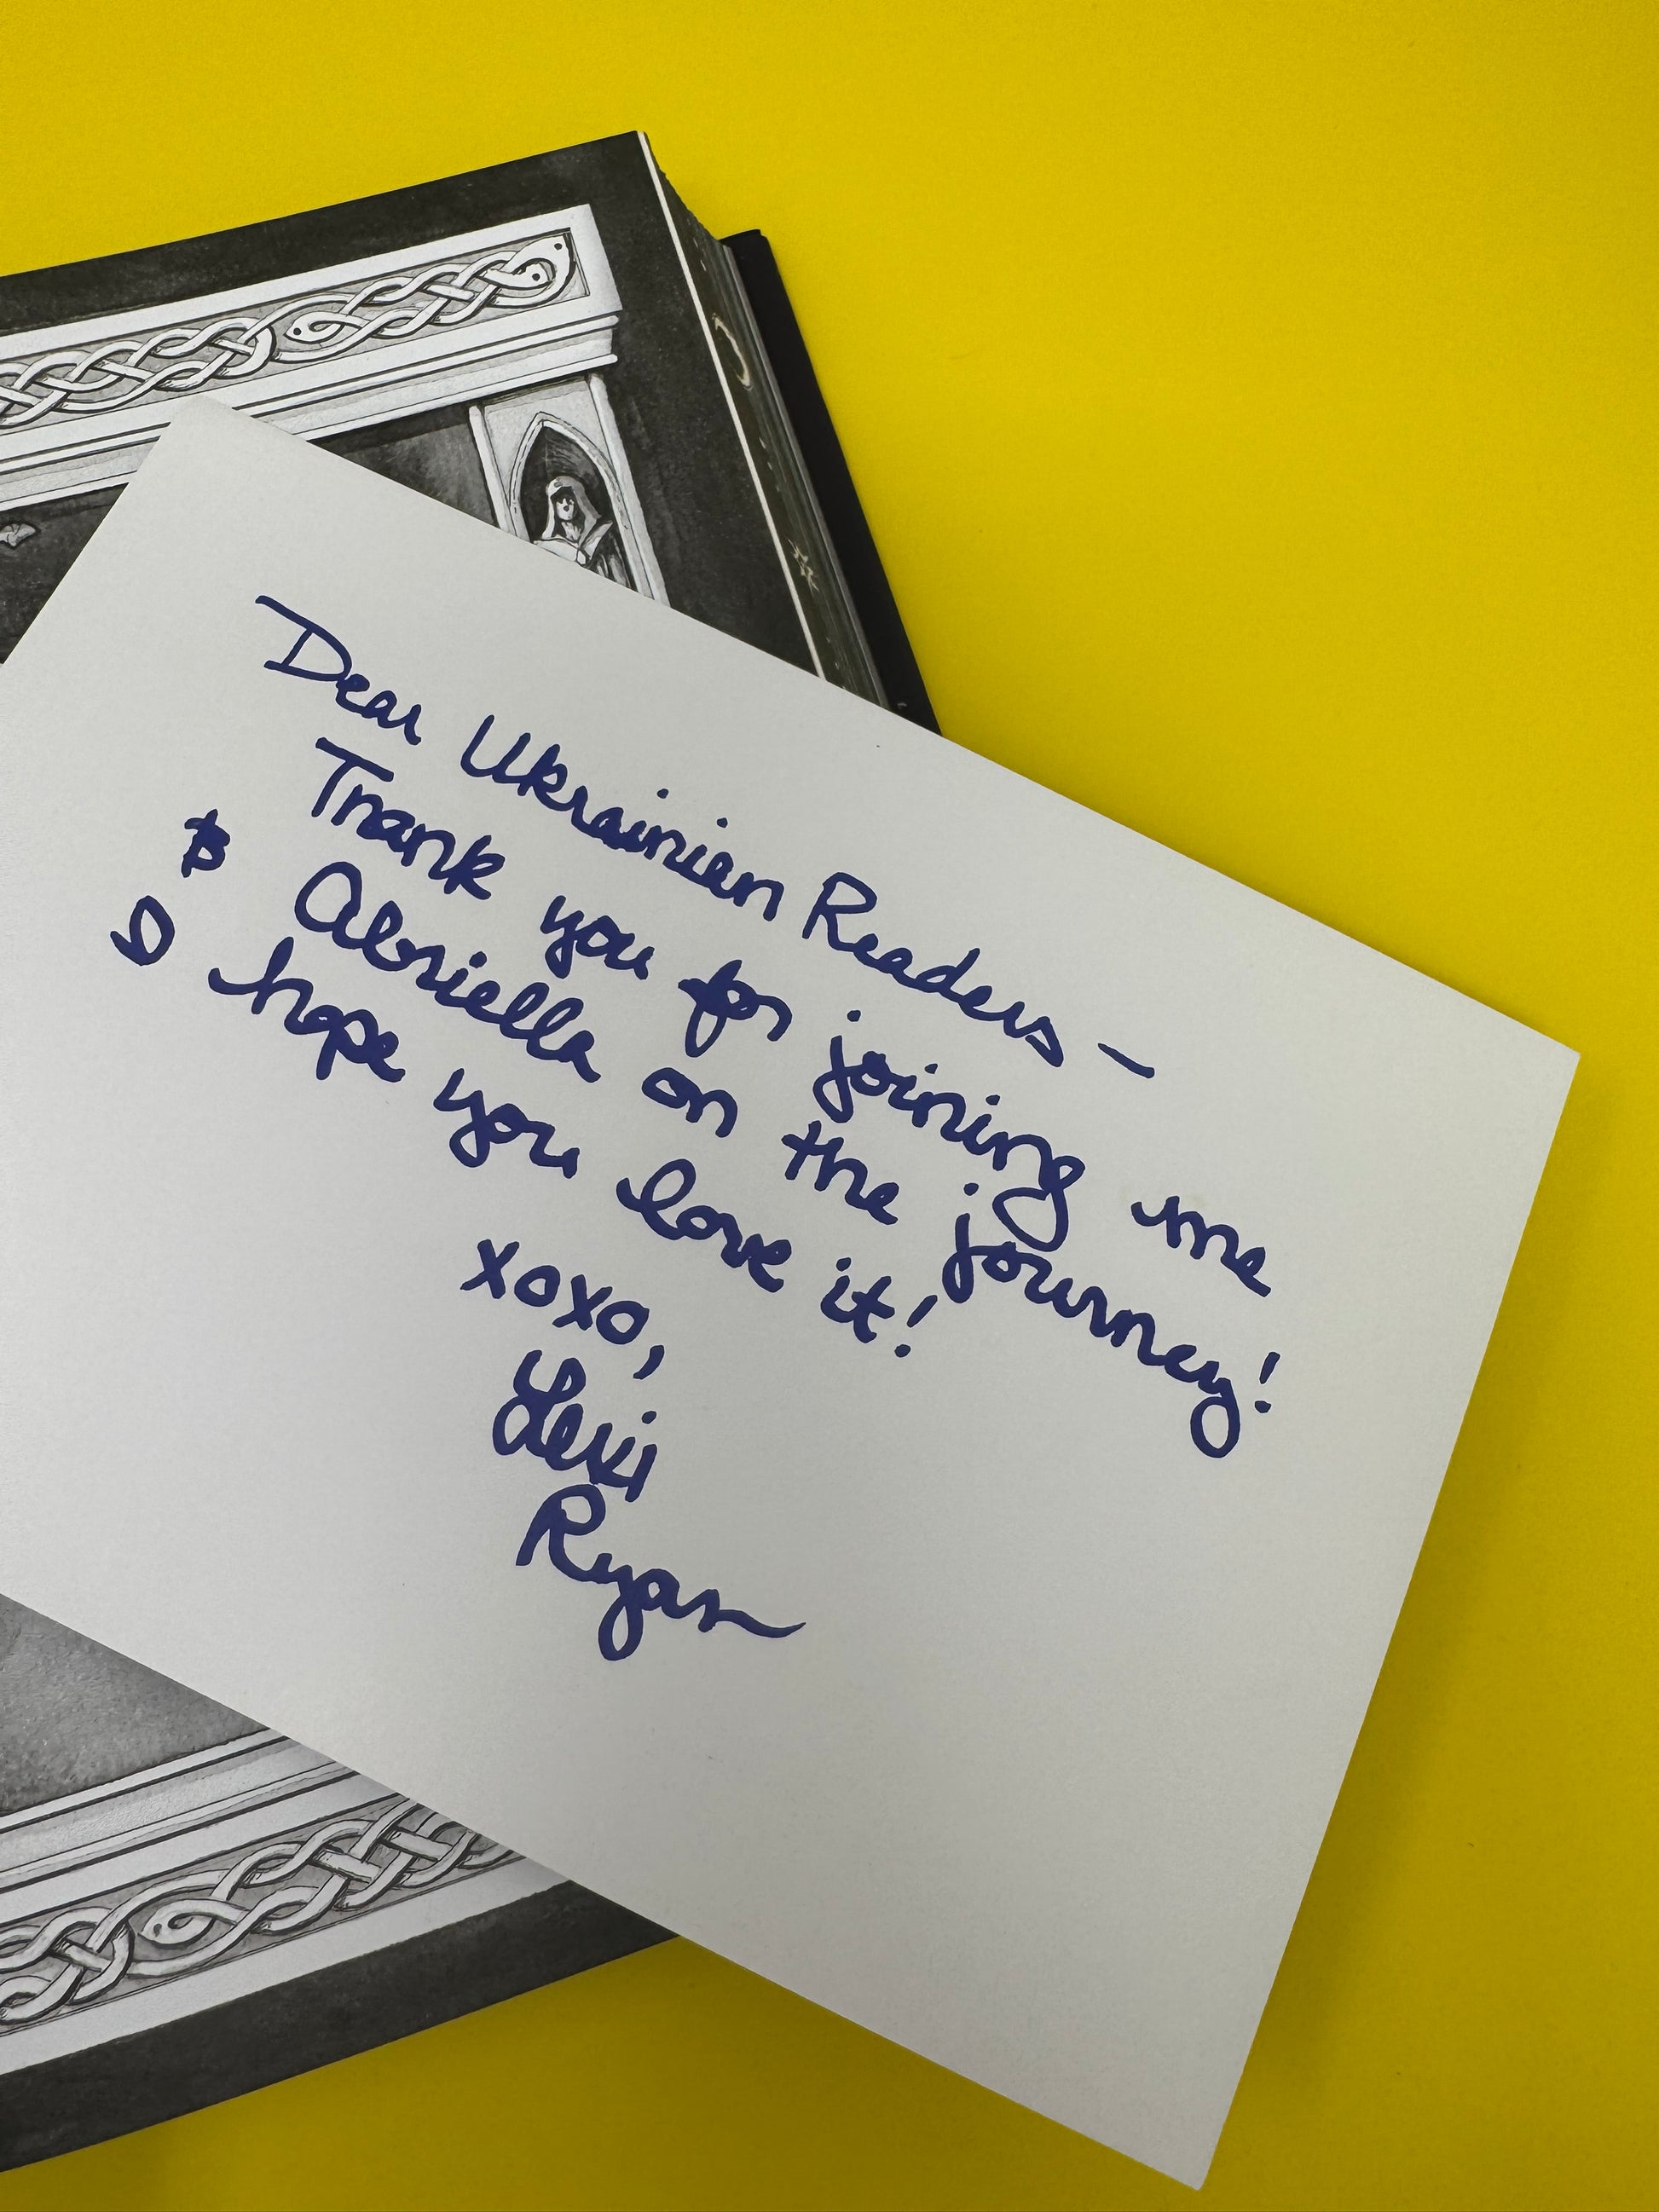 Dear Ukrainian Readers –
Thank you for joining me
& Abriella on the journey!
I hope you love it!
xoxo,
Lexi
Ryan